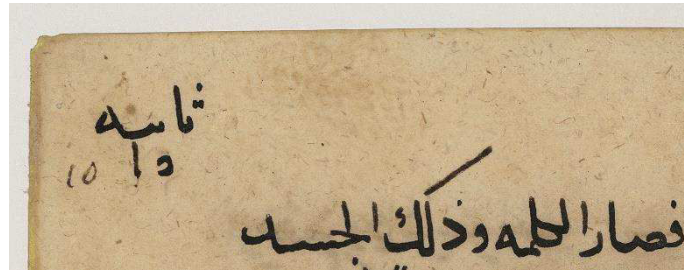 ثانيه
10
فصار الكلمه وذلك الجسد